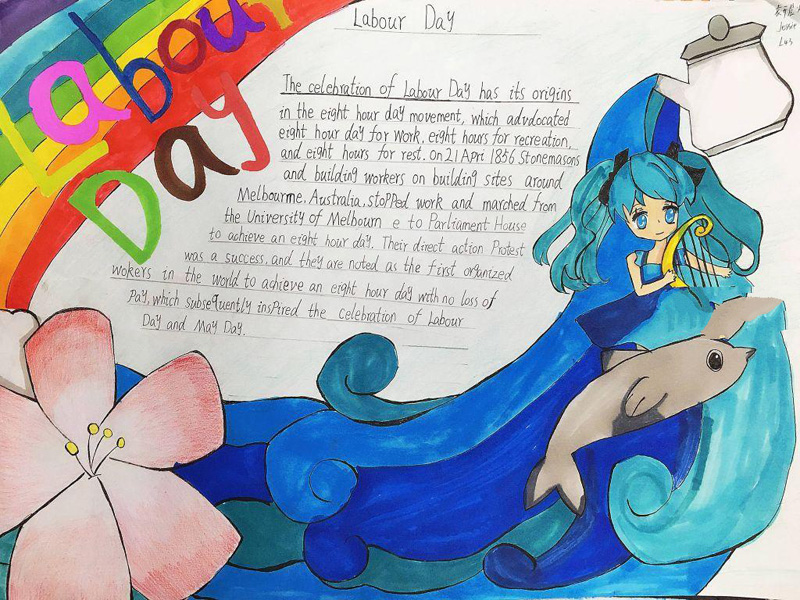 Labour Day
Labour
Day
The celebration of Labour Day has its origins
in the eight hour day movement, which advdocated
eight hour day for work, eight hours for recreation,
and eight hours for rest. on 21 Apri 1856 Stonemasons
and building workers on building sites around
Melbourme, Australia, stopped work and marched from
the University of Melbourn e to Parliament House
to achieve an eight hour day. Their direct action Protest
was a success. and they are noted as the first organized
wokers in the world to achieve an eight hour day with no loss of
Pay, which subsequently inspired the celebration of Labour
Day and May Day.